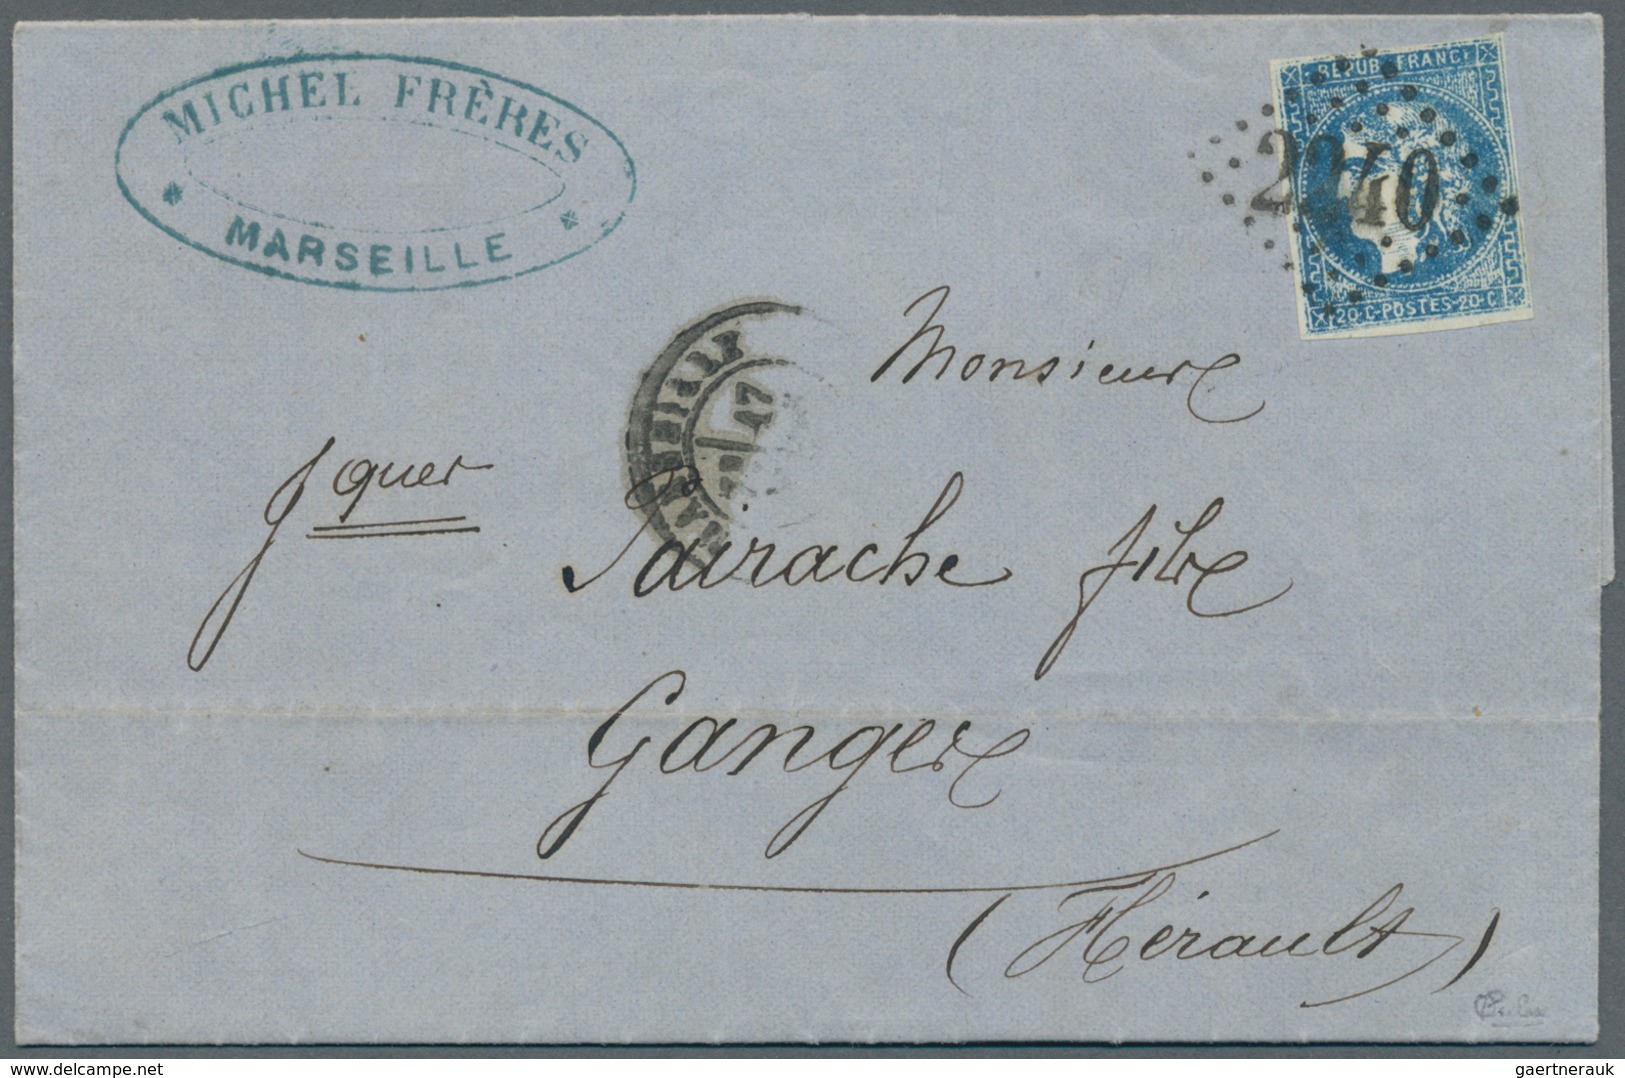 MICHEL FRÈRES
MARSEILLE
REPUB. FRANC.
2240
20·C·POSTES·20·C
MARSEILLE
17
Monsieur
Jques Pairache fils
Ganges
(Hérault)
delcampe.net
gaertnerauk